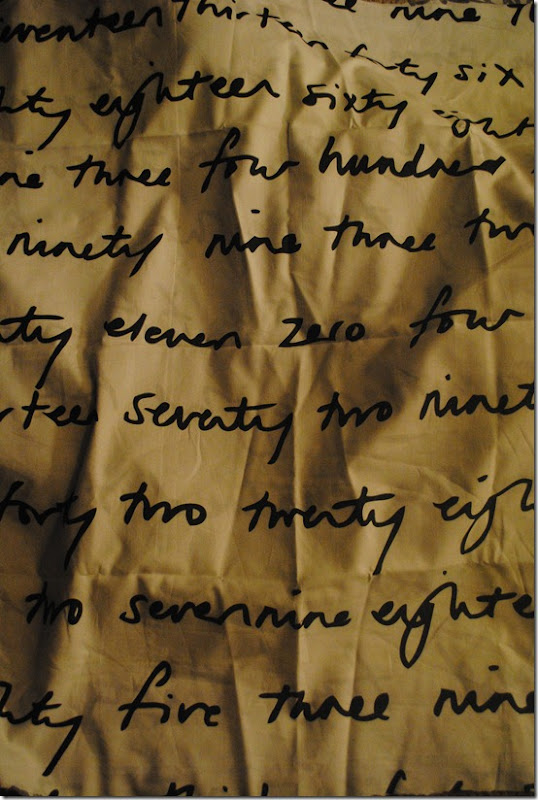 seventeen thirteen nine
forty six
eighteen sixty
three four hundred
ninety nine three two
eleven zero four
seventy two ninety
forty two twenty eigh
two seven nine eightee
five three nine